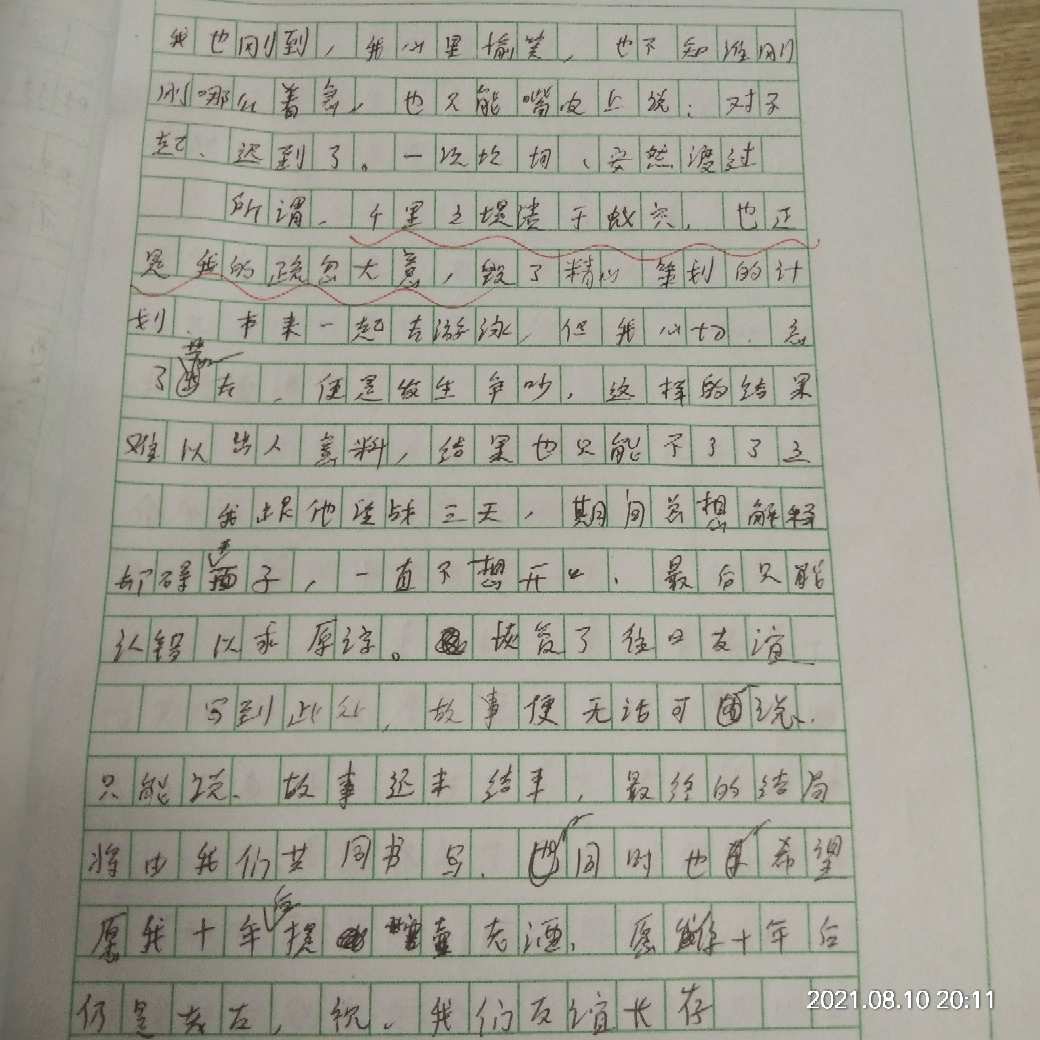 我也刚到，我心里偷笑，也不知谁刚
刚哪么着急，也只能嘴皮上说：对不
起、迟到了。一次坎坷、安然渡过
所谓、千里之堤溃于蚁穴，也正
是我的疏忽大意，毁了精心策划的计
划、本来一起去游泳，但我心切、忘
了带，便是发生争吵，这样的结果
难以出人意料，结果也只能不了了之
我跟他陆战三天，期间总想解释
却碍于面子，一直不想开口、最后只能
认错以求原谅。恢复了往日友谊
写到此处，故事便无话可说、
只能说、故事还未结束，最终的结局
将由我们共同书写、同时也希望
愿我十年后提壶老酒、愿你十年后
仍是老友，祝、我们友谊长存
2021.08.10 20:11